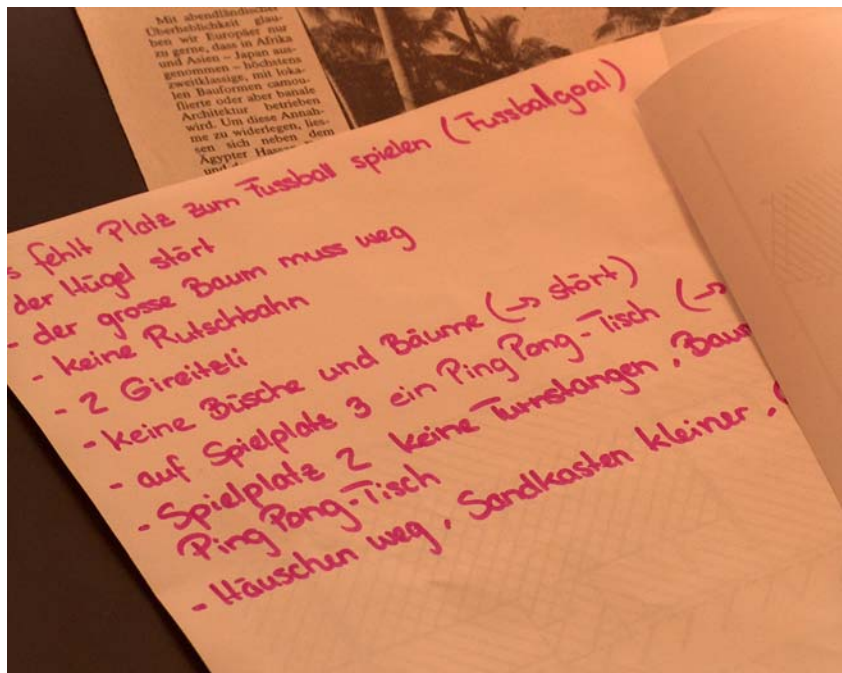 Mit abendländischer
Überheblichkeit glau-
ben wir Europäer nur
zu gerne, dass in Afrika
und Asien – Japan aus-
genommen – höchstens
zweitklassige, mit loka-
len Bauformen camou-
flierte oder aber banale
Architektur betrieben
wird. Um diese Annah-
me zu widerlegen, lies-
sen sich neben dem
Ägypter
und
s fehlt Platz zum Fussball spielen (Fussballgoal)
der Hügel stört
- der grosse Baum muss weg
- keine Rutschbahn
- 2 Gireitzli
- keine Büsche und Bäume (→ stört)
- auf Spielplatz 3 ein Ping Pong-Tisch (→
- Spielplatz 2 keine Turnstangen, Baum
Ping Pong-Tisch
- Häuschen weg, Sandkasten kleiner,